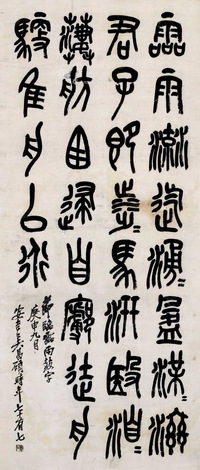 霝雨流迄滂=盈渫=滋
君子即涉=馬汧殹洎=
萋舫囪逮自廍徒
馭隹舟以行
節臨霝雨鼓字
庚申九月
安吉吳昌碩時年七十有七